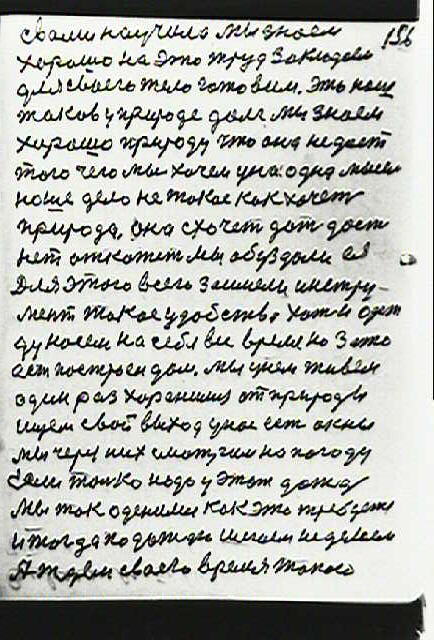 156
свами научила мы знаем
хорошо на это труд закладаем
для своего тело готовим. Это наш
таков у природе долг мы знаем
хорошо природу что она не дает
того чего мы хочем у нас одна мысел
наше дело не такое как хочет
природа, она схочет дат даст
нет откажет мы обуздали ея
для этого всего зашили инстру-
мент такое удобство. Хот и одеж
ду носем на себя все время но за то
ест построен дом. мы у нем живем
один раз хоранимся от природы
ищем свой выход у нас ест окны
мы через них смотрим на погоду
если толко надо у этот дожд
мы так оденимся как это требует
и тогда по дождю шлем не далеем
А ждем своего время такого